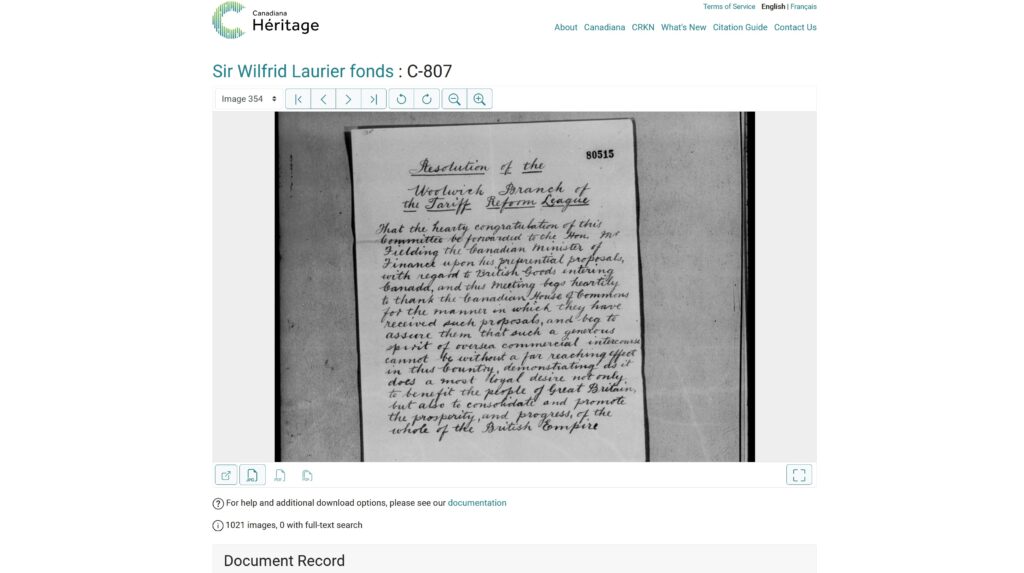 Canadiana
Héritage
Terms of Service English | Français
About Canadiana CRKN What's New Citation Guide Contact Us
Sir Wilfrid Laurier fonds : C-807
Image 354
80515
Resolution of the
Woolwich Branch of
the Tariff Reform League
That the hearty congratulation of this
Committee be forwarded to the Hon. Mr
Fielding the Canadian Minister of
Finance upon his preferential proposals,
with regard to British Goods entering
Canada, and this Meeting begs heartily
to thank the Canadian House of Commons
for the manner in which they have
received such proposals, and beg to
assure them that such a generous
spirit of oversea commercial intercourse
cannot be without a far reaching effect
in this Country, demonstrating as it
does a most loyal desire not only
to benefit the people of Great Britain,
but also to consolidate and promote
the prosperity, and progress, of the
whole of the British Empire
For help and additional download options, please see our documentation
1021 images, 0 with full-text search
Document Record